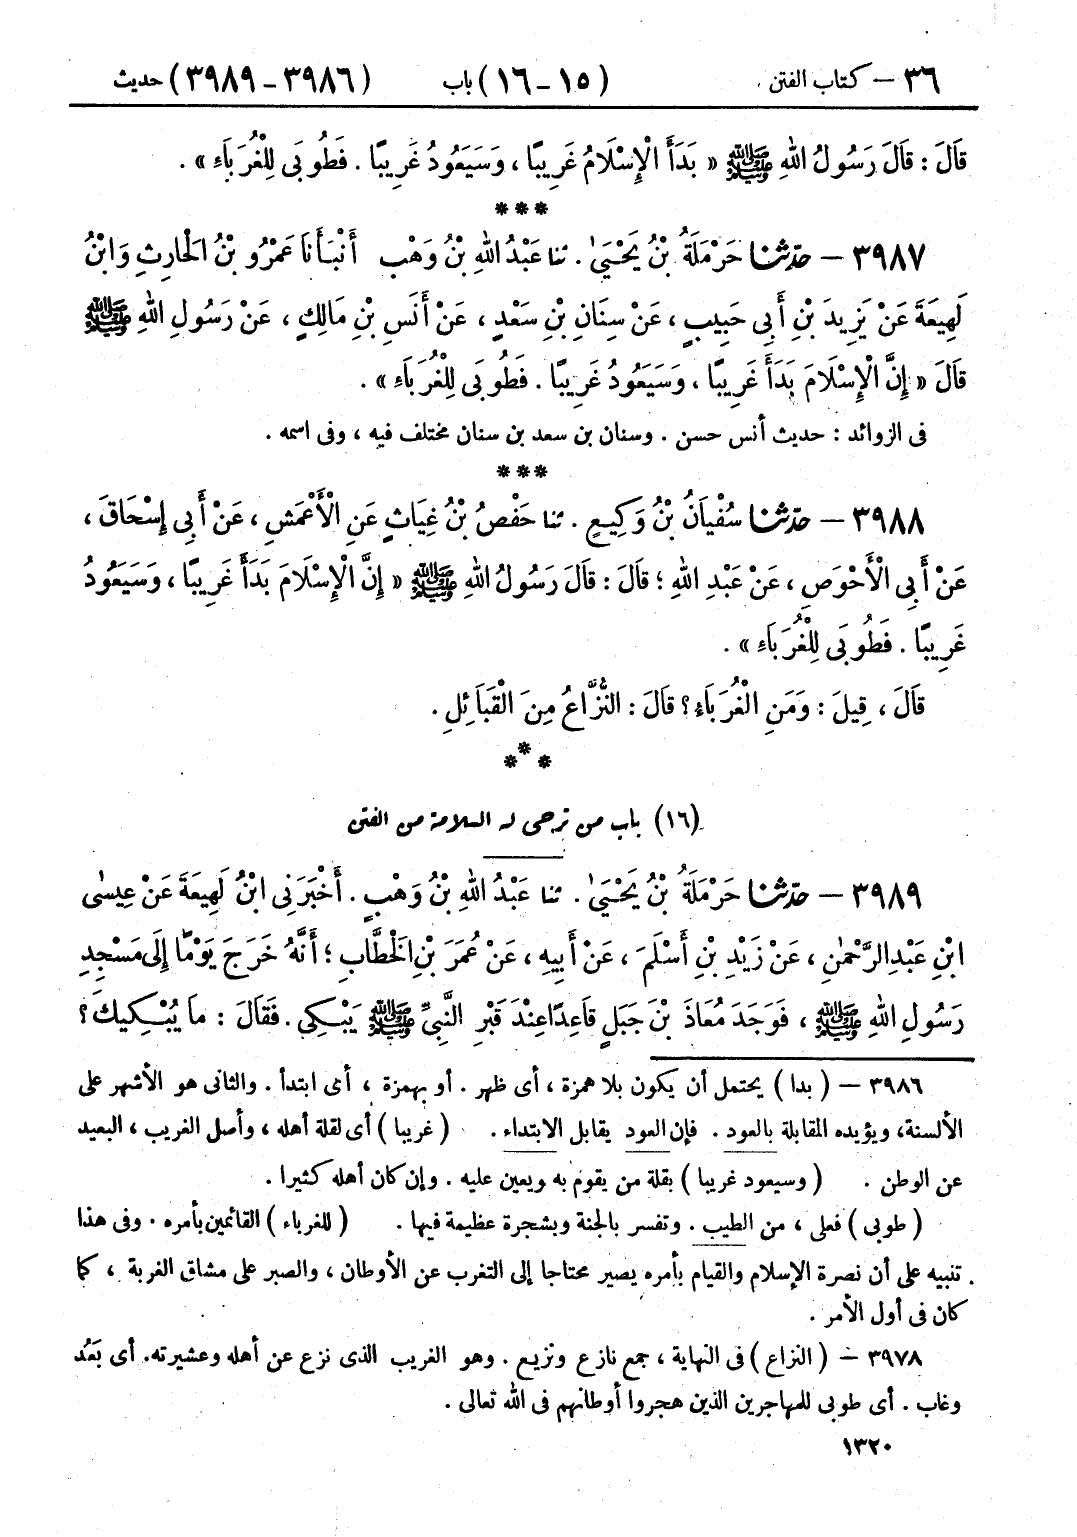 ٣٦ — كتاب الفتن (١٥ - ١٦) باب (٣٩٨٦ - ٣٩٨٩) حديث
قَالَ : قَالَ رَسُولُ اللهِ ﷺ « بَدَأَ الْإِسْلَامُ غَرِيبًا ، وَسَيَعُودُ غَرِيبًا . فَطُوبَى لِلْغُرَبَاءِ » .
***
٣٩٨٧ — حَدَّثَنَا حَرْمَلَةُ بْنُ يَحْيَىٰ . ثنا عَبْدُ اللهِ بْنُ وَهْبٍ أَنْبَأَنَا عَمْرُو بْنُ الْحَارِثِ وَابْنُ
لَهِيعَةَ عَنْ يَزِيدَ بْنِ أَبِي حَبِيبٍ ، عَنْ سِنَانِ بْنِ سَعْدٍ ، عَنْ أَنَسِ بْنِ مَالِكٍ ، عَنْ رَسُولِ اللهِ ﷺ
قَالَ « إِنَّ الْإِسْلَامَ بَدَأَ غَرِيبًا ، وَسَيَعُودُ غَرِيبًا . فَطُوبَى لِلْغُرَبَاءِ » .
فى الزوائد : حديث أنس حسن . وسنان بن سعد بن سنان مختلف فيه ، وفى اسمه .
***
٣٩٨٨ — حَدَّثَنَا سُفْيَانُ بْنُ وَكِيعٍ . ثنا حَفْصُ بْنُ غِيَاثٍ عَنِ الْأَعْمَشِ ، عَنْ أَبِي إِسْحَاقَ ،
عَنْ أَبِي الْأَحْوَصِ ، عَنْ عَبْدِ اللهِ ؛ قَالَ : قَالَ رَسُولُ اللهِ ﷺ « إِنَّ الْإِسْلَامَ بَدَأَ غَرِيبًا ، وَسَيَعُودُ
غَرِيبًا . فَطُوبَى لِلْغُرَبَاءِ » .
قَالَ ، قِيلَ : وَمَنِ الْغُرَبَاءُ ؟ قَالَ : النُّزَّاعُ مِنَ الْقَبَائِلِ .
***
(١٦) باب من ترجى له السلامة من الفتن
٣٩٨٩ — حَدَّثَنَا حَرْمَلَةُ بْنُ يَحْيَىٰ . ثنا عَبْدُ اللهِ بْنُ وَهْبٍ . أَخْبَرَنِي ابْنُ لَهِيعَةَ عَنْ عِيسَى
ابْنِ عَبْدِ الرَّحْمٰنِ ، عَنْ زَيْدِ بْنِ أَسْلَمَ ، عَنْ أَبِيهِ ، عَنْ عُمَرَ بْنِ الْخَطَّابِ ؛ أَنَّهُ خَرَجَ يَوْمًا إِلَى مَسْجِدِ
رَسُولِ اللهِ ﷺ ، فَوَجَدَ مُعَاذَ بْنَ جَبَلٍ قَاعِدًا عِنْدَ قَبْرِ النَّبِيِّ ﷺ يَبْكِي . فَقَالَ : مَا يُبْكِيكَ ؟
٣٩٨٦ — ( بدا ) يحتمل أن يكون بلا همزة ، أى ظهر . أو بهمزة ، أى ابتدأ . والثانى هو الأشهر على
الألسنة، ويؤيده المقابلة بالعود . فإن العود يقابل الابتداء . ( غريبا ) أى لقلة أهله ، وأصل الغريب ، البعيد
عن الوطن . ( وسيعود غريبا ) بقلة من يقوم به ويعين عليه . وإن كان أهله كثيرا .
( طوبى ) فعلى ، من الطيب . وتفسر بالجنة وبشجرة عظيمة فيها . ( للغرباء ) القائمين بأمره . وفى هذا
تنبيه على أن نصرة الإسلام والقيام بأمره يصير محتاجا إلى التغرب عن الأوطان ، والصبر على مشاق الغربة ، كما
كان فى أول الأمر .
٣٩٧٨ — ( النزاع ) فى النهاية ، جمع نازع ونزيع . وهو الغريب الذى نزع عن أهله وعشيرته. أى بَعُد
وغاب . أى طوبى للمهاجرين الذين هجروا أوطانهم فى الله تعالى .
١٣٢٠